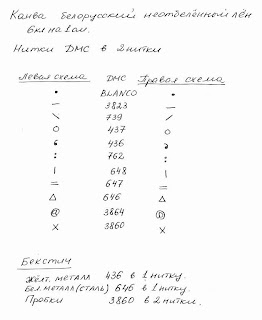 Канва Белорусский неотбелённый лён
6кл на 1см.
Нитки DMC в 2 нитки
Левая схема DMC Правая схема
• BLANCO •
— 3823 —
\ 739 /
O 437 O
• 436 •
: 762 :
| 648 |
= 647 =
Δ 646 Δ
@ 3864 @
X 3860 X
Бекстич
Жёлт. металл 436 в 1 нитку.
Бел. металл (сталь) 646 в 1 нитку.
Пробки 3860 в 2 нитки.